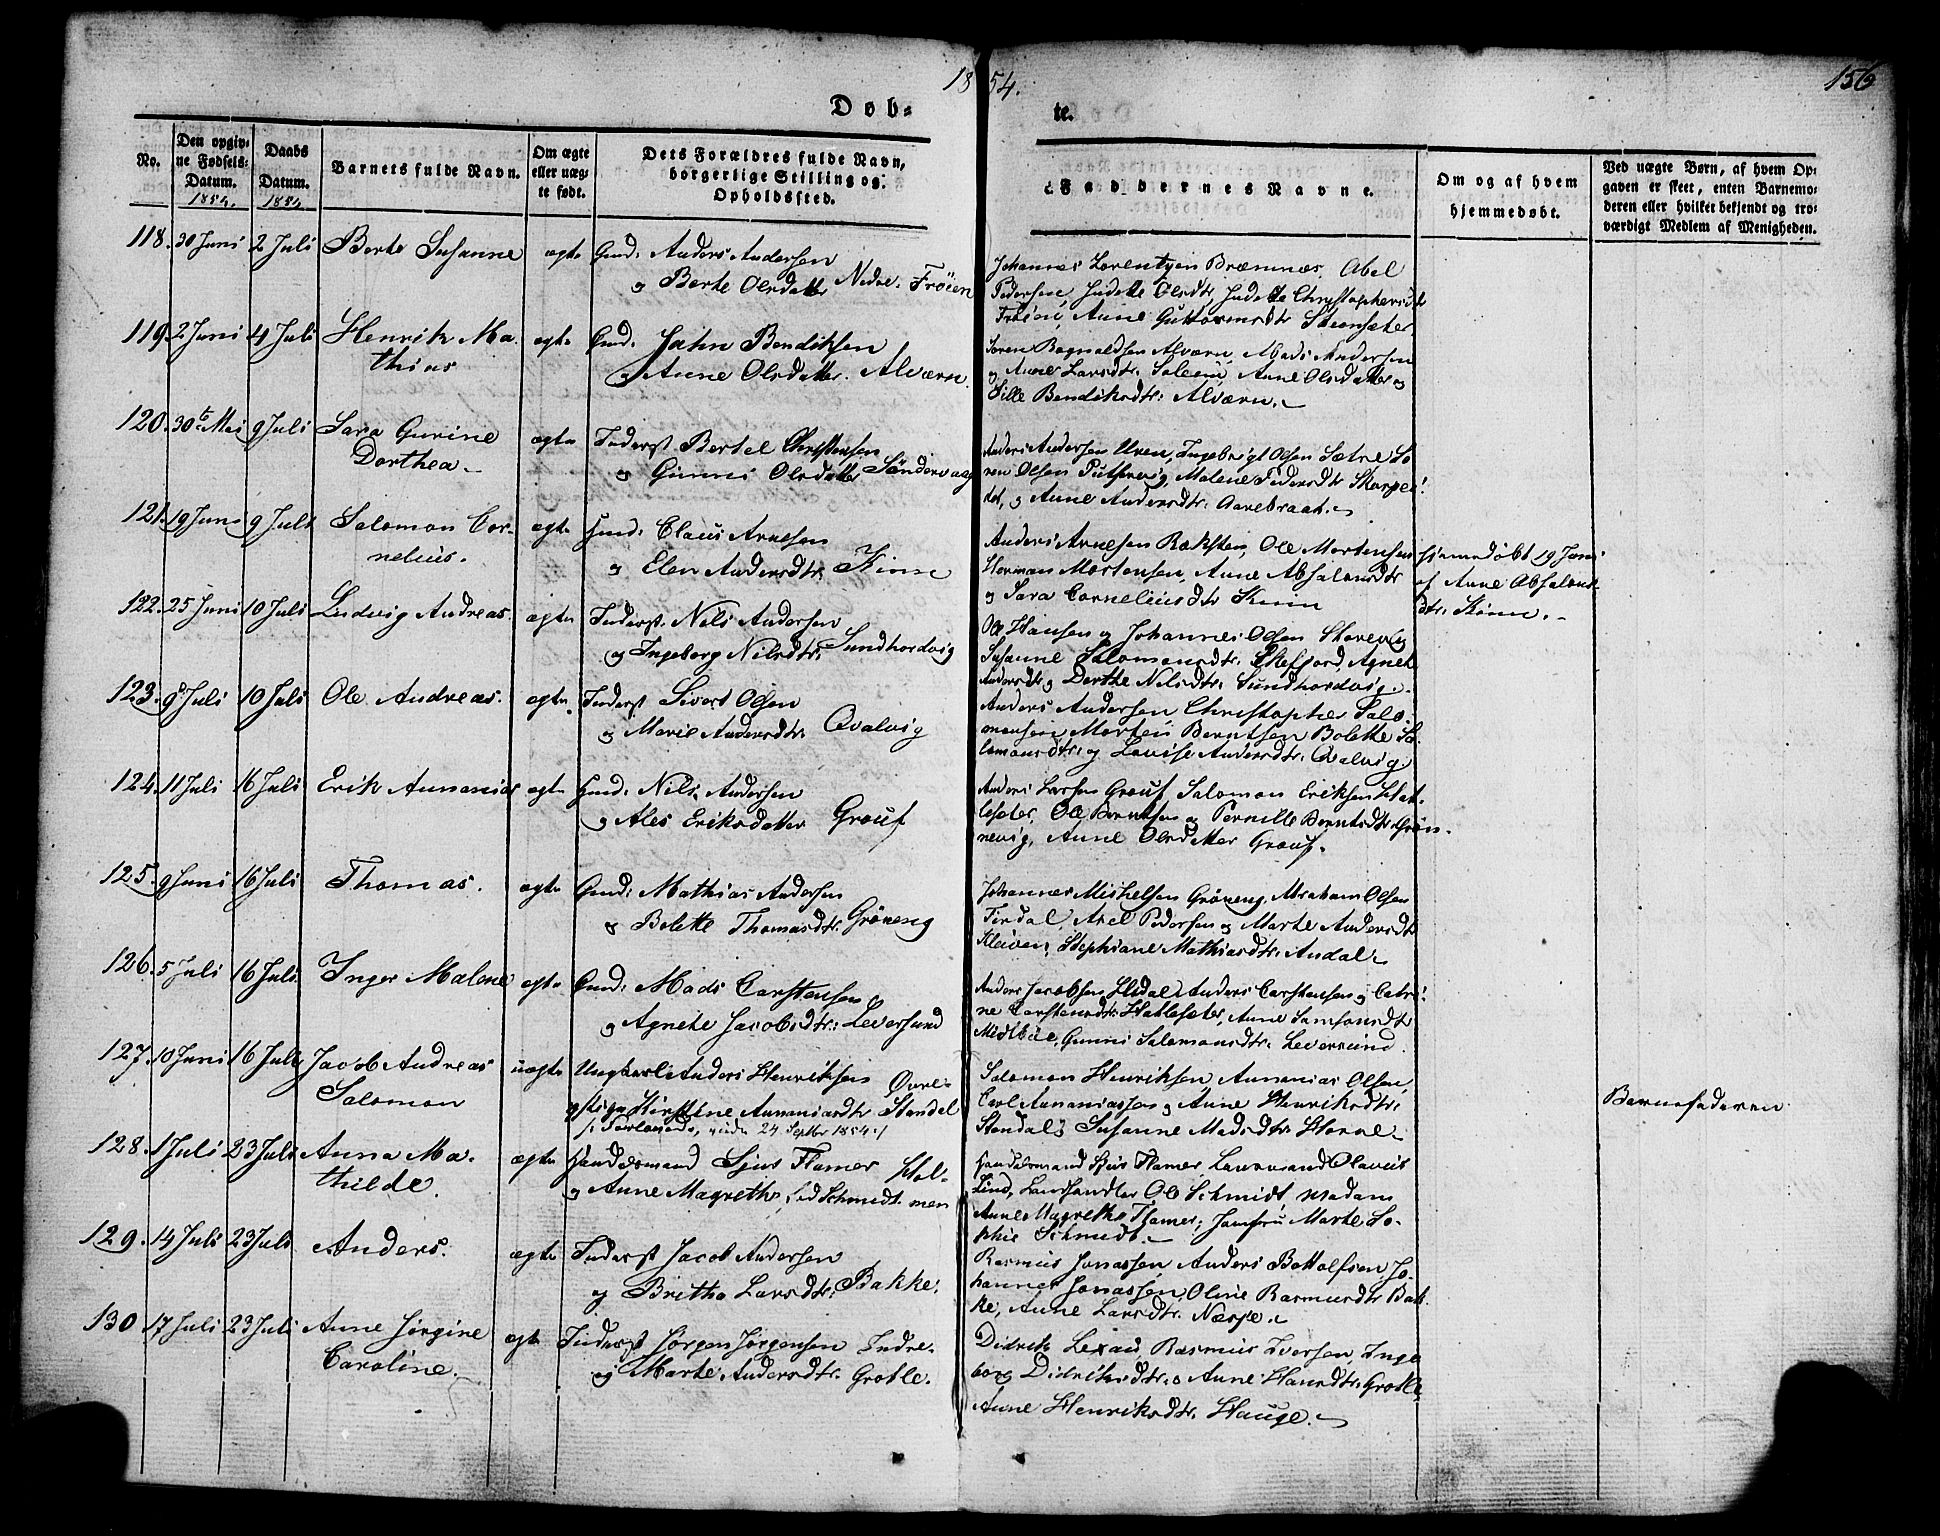 1854.
156
Døb-
te.
No.
Den opgiv-
ne Fødsels-
Datum.
1854.
Daabs
Datum.
1854
Barnets fulde Navn.
Om ægte
eller uæg-
te født.
Dets Forældres fulde Navn,
borgerlige Stilling og
Opholdssted.
Faddernes Navne.
Om og af hvem
hjemmedøbt.
Ved uægte Børn, af hvem Op-
gaven er skeet, enten Barnemo-
deren eller hvilket bekjendt og tro-
værdigt Medlem af Menigheden.
118. 30 Juni 2 Juli Berte Susanne ægte Gmd: Anders Andersen
og Berte Olsdatter Nedre Frøien
Johannes Lorentzen Bræmnæs, Abel
Pedersen, Judette Olsdtr, Judette Christophersdtr
Frøien, Anne Guttormsdtr Steinsæter
119. 2 Juni 4 Juli Henrik Ma-
thias ægte Gmd: John Bendiksen
og Anne Olsdatter. Alværn.
Søren Ragnaldsen Alværn, Mads Andersen
og Anne Larsdtr. Soleim, Anne Olsdatter og
Sille Bendiksdtr: Alværn.
120. 30te Mai 9 Juli Sara Gurine
Dorthea ægte Inderst Bertel Christensen
og Gunni Olsdatter Søndervaag
Anders Andersen Uren, Ingebrigt Olsen Sætre Sø-
ren Olsen Malene Pedersdtr Skorpe-
og Anne Andersdtr: Aarebraat.
121. 19 Juni 9 Juli Salomon Cor-
nelius. ægte Gmd: Claus Arnesen
og Elen Andersdtr Kinn
Anders Arnesen Ræksten, Ole Mortensen
Herman Mortensen, Anne Absalonsdtr
og Sara Corneliusdtr Kinn
Hjemmedøbt 19 Juni
af Anne Absalons-
dtr: Kinn.
122. 25 Juni 10 Juli Ludvig Andreas. ægte Inderst. Nils Andersen
og Ingeborg Nilsdtr: Sundhordvig
Ole Hansen og Johannes Olsen
Susanne Salomonsdtr: Agnete
Andersdtr og Dorthe Nilsdtr: Sundhordvig.
123. 9 Juli 10 Juli Ole Andreas. ægte Inderst Sivert Olsen
og Marie Andersdtr: Qvalvig
Anders Andersen, Christopher Salo-
monsen Morten Berntsen Bolette Sa-
lomonsdtr: og Lovise Andersdtr. Qvalvig.
124. 11 Juli 16 Juli Erik Annanias ægte Gmd: Nils Andersen
og Ales Eriksdatter Grouf
Anders Larsen Grouf Salomon Eriksen Hat-
lesæter, Ole Berntsen og Pernille Berntsdtr Grøn-
nevig, Anne Olsdatter Grouf.
125. 9 Juni 16 Juli Thomas. ægte Gmd: Mathias Andersen
og Bolette Thomasdtr: Grøneng
Johannes Mickelsen Grøneng, Abraham Olsen
Tindal, Axel Pedersen og Marte Andersdtr
Kleiven, Stephiane Mathiasdtr: Andal.
126. 5 Juli 16 Juli Inger Malene ægte Gmd: Mads Carstensen
og Agnete Jacobsdtr: Leversund
Anders Jacobsen Anders Carstensen og Catri-
ne Carstensdtr: Hatlesæter, Anne Samsonsdtr
Midtbøe, Gunni Salomonsdtr: Leversund.
127. 10 Juni 16 Juli Jacob Andreas
Salomon uægte Ungkarl Anders Henriksen Øvre-
og Pige Kirstine Annaniasdtr Standal
/: Forlovede, viede 24 Septbr 1854 :/
Salomon Henriksen, Annanias Olsen,
Carl Annaniassen og Anne Henriksdtr:
Standal, Susanne Madsdtr: Horne.
Barnefaderen
128. 1 Juli 23 Juli Anna Ma-
thilde. ægte Handelsmand Sjus Flamer Hol-
og Anne Magrethe, fød Schmidt. men
Handelsmand Sjus Flamer, Lensmand Olavus
Lind, Landhandler Ole Schmidt, Madam
Anne Magrethe Flamer, Jomfru Marte So-
phie Schmidt.
129. 14 Juli 23 Juli Anders. ægte Inderst Jacob Andersen
og Britha Larsdtr: Bakke.
Rasmus Jonassen, Anders Bottolfsen, Jo-
hannes Jonassen, Oline Rasmusdtr Bak-
ke, Anne Larsdtr. Næsse.
130 17 Juli 23 Juli Anne Jørgine
Caroline. ægte Inderst Jørgen Jørgensen Indre-
og Marte Andersdtr. Grotle.
Didrik Rasmus Iversen, Inge-
borg Didriksdtr: Anne Hansdtr: Grotle,
Anne Henriksdtr. Hauge.